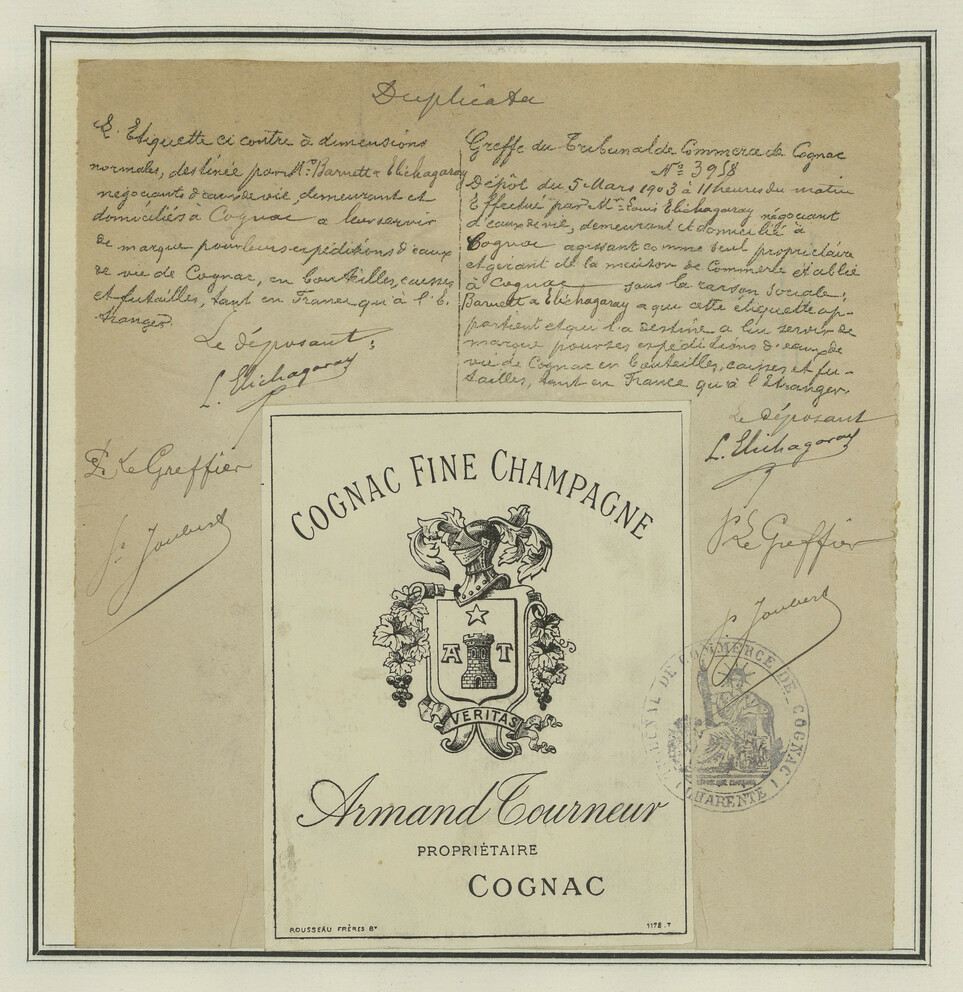 Duplicata
L'Etiquette ci contre à dimensions
normales, destinée par Mrs Barnett & Elichagaray
négociants d'eaux de vie, demeurant et
domiciliés à Cognac a leur servir
de marque pour leurs expéditions d'eaux
de vie de Cognac, en bouteilles, caisses
et futailles, tant en France qu'à l'E-
tranger.
Le déposant,
L. Elichagaray
Pr Le Greffier
Joubert
Greffe du Tribunal de Commerce de Cognac
No 3958
Dépôt du 5 Mars 1903 à 11 heures du matin
Effectué par Mr Louis Elichagaray négociant
d'eaux de vie, demeurant et domicilié à
Cognac agissant comme seul propriétaire
et gérant de la maison de Commerce établie
à Cognac sous la raison sociale:
Barnett & Elichagaray a qui cette étiquette ap-
partient et qui l'a destine a lui servir de
marque pour ses expéditions d'eaux de
vie de Cognac en bouteilles, caisses et fu-
tailles, tant en France qu'à l'Etranger.
Le déposant
L. Elichagaray
Pr Le Greffier
Joubert
COGNAC FINE CHAMPAGNE
A T
VERITAS
Armand Tourneur
PROPRIÉTAIRE
COGNAC
ROUSSEAU FRÈRES Bx
1178.T
TRIBUNAL DE COMMERCE DE COGNAC
(CHARENTE)